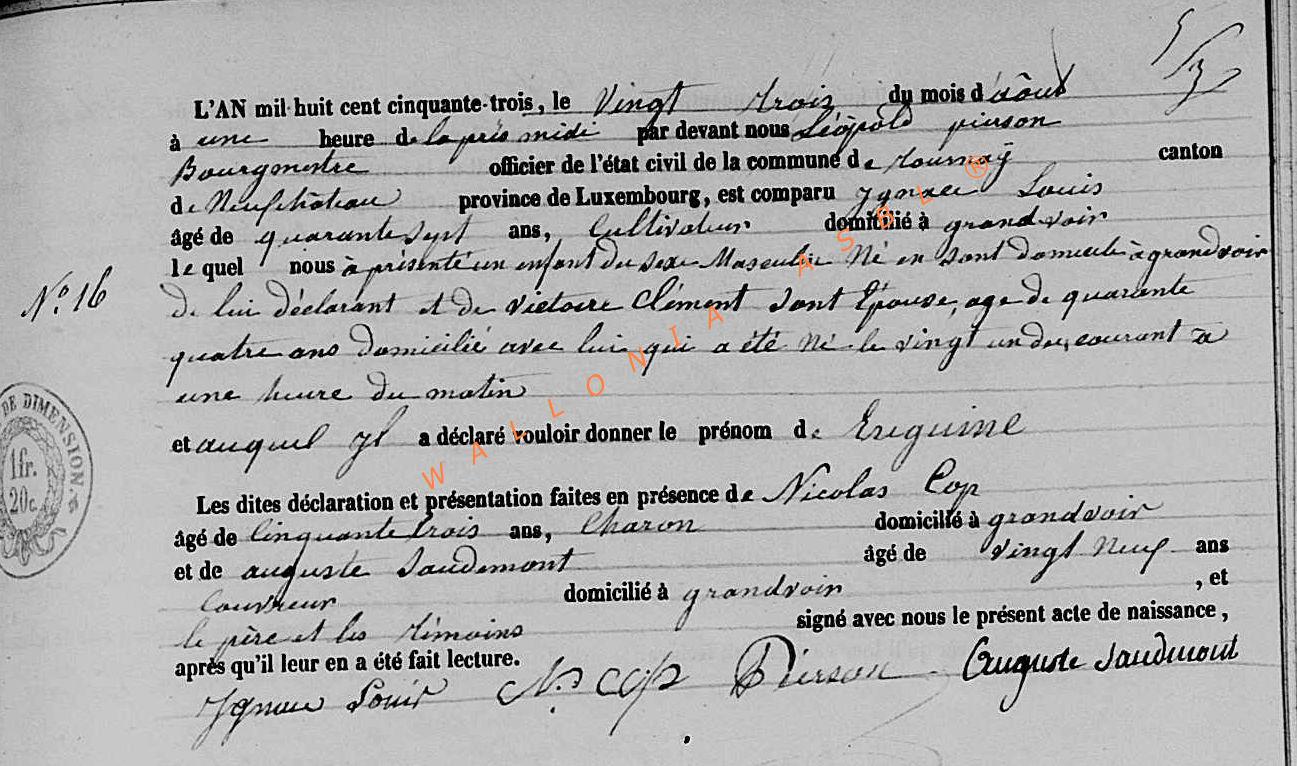 L'AN mil-huit cent cinquante-trois, le Vingt trois du mois d'août
à une heure de laprès midi par devant nous Léopold pierson
Bourgmestre officier de l'état civil de la commune de tournay canton
de Neufchâteau province de Luxembourg, est comparu Ygnace Louis
âgé de quarante Sept ans, Cultivateur domicilié à grandvoir
le quel nous à présenté un enfant du sexe Masculin Né en sont domicile à grandvoir
N° 16
de lui déclarant et de Victoire Clément sont Epouse, age de quarante
quatre ans domicilié avec lui qui a été Né le vingt un du courant à
une heure du matin
et auquel yl a déclaré vouloir donner le prénom de
DE DIMENSION
1fr.
20c.
Les dites déclaration et présentation faites en présence de Nicolas Cop
âgé de Cinquante trois ans, Charon domicilié à grandvoir
et de auguste Saudemont âgé de vingt Neuf ans
Couvreur domicilié à grandvoir , et
le père et les témoins signé avec nous le présent acte de naissance,
après qu'il leur en a été fait lecture.
Ygnace Louis N. COP Pierson Auguste Saudmont
WALLONIA ASBL ®